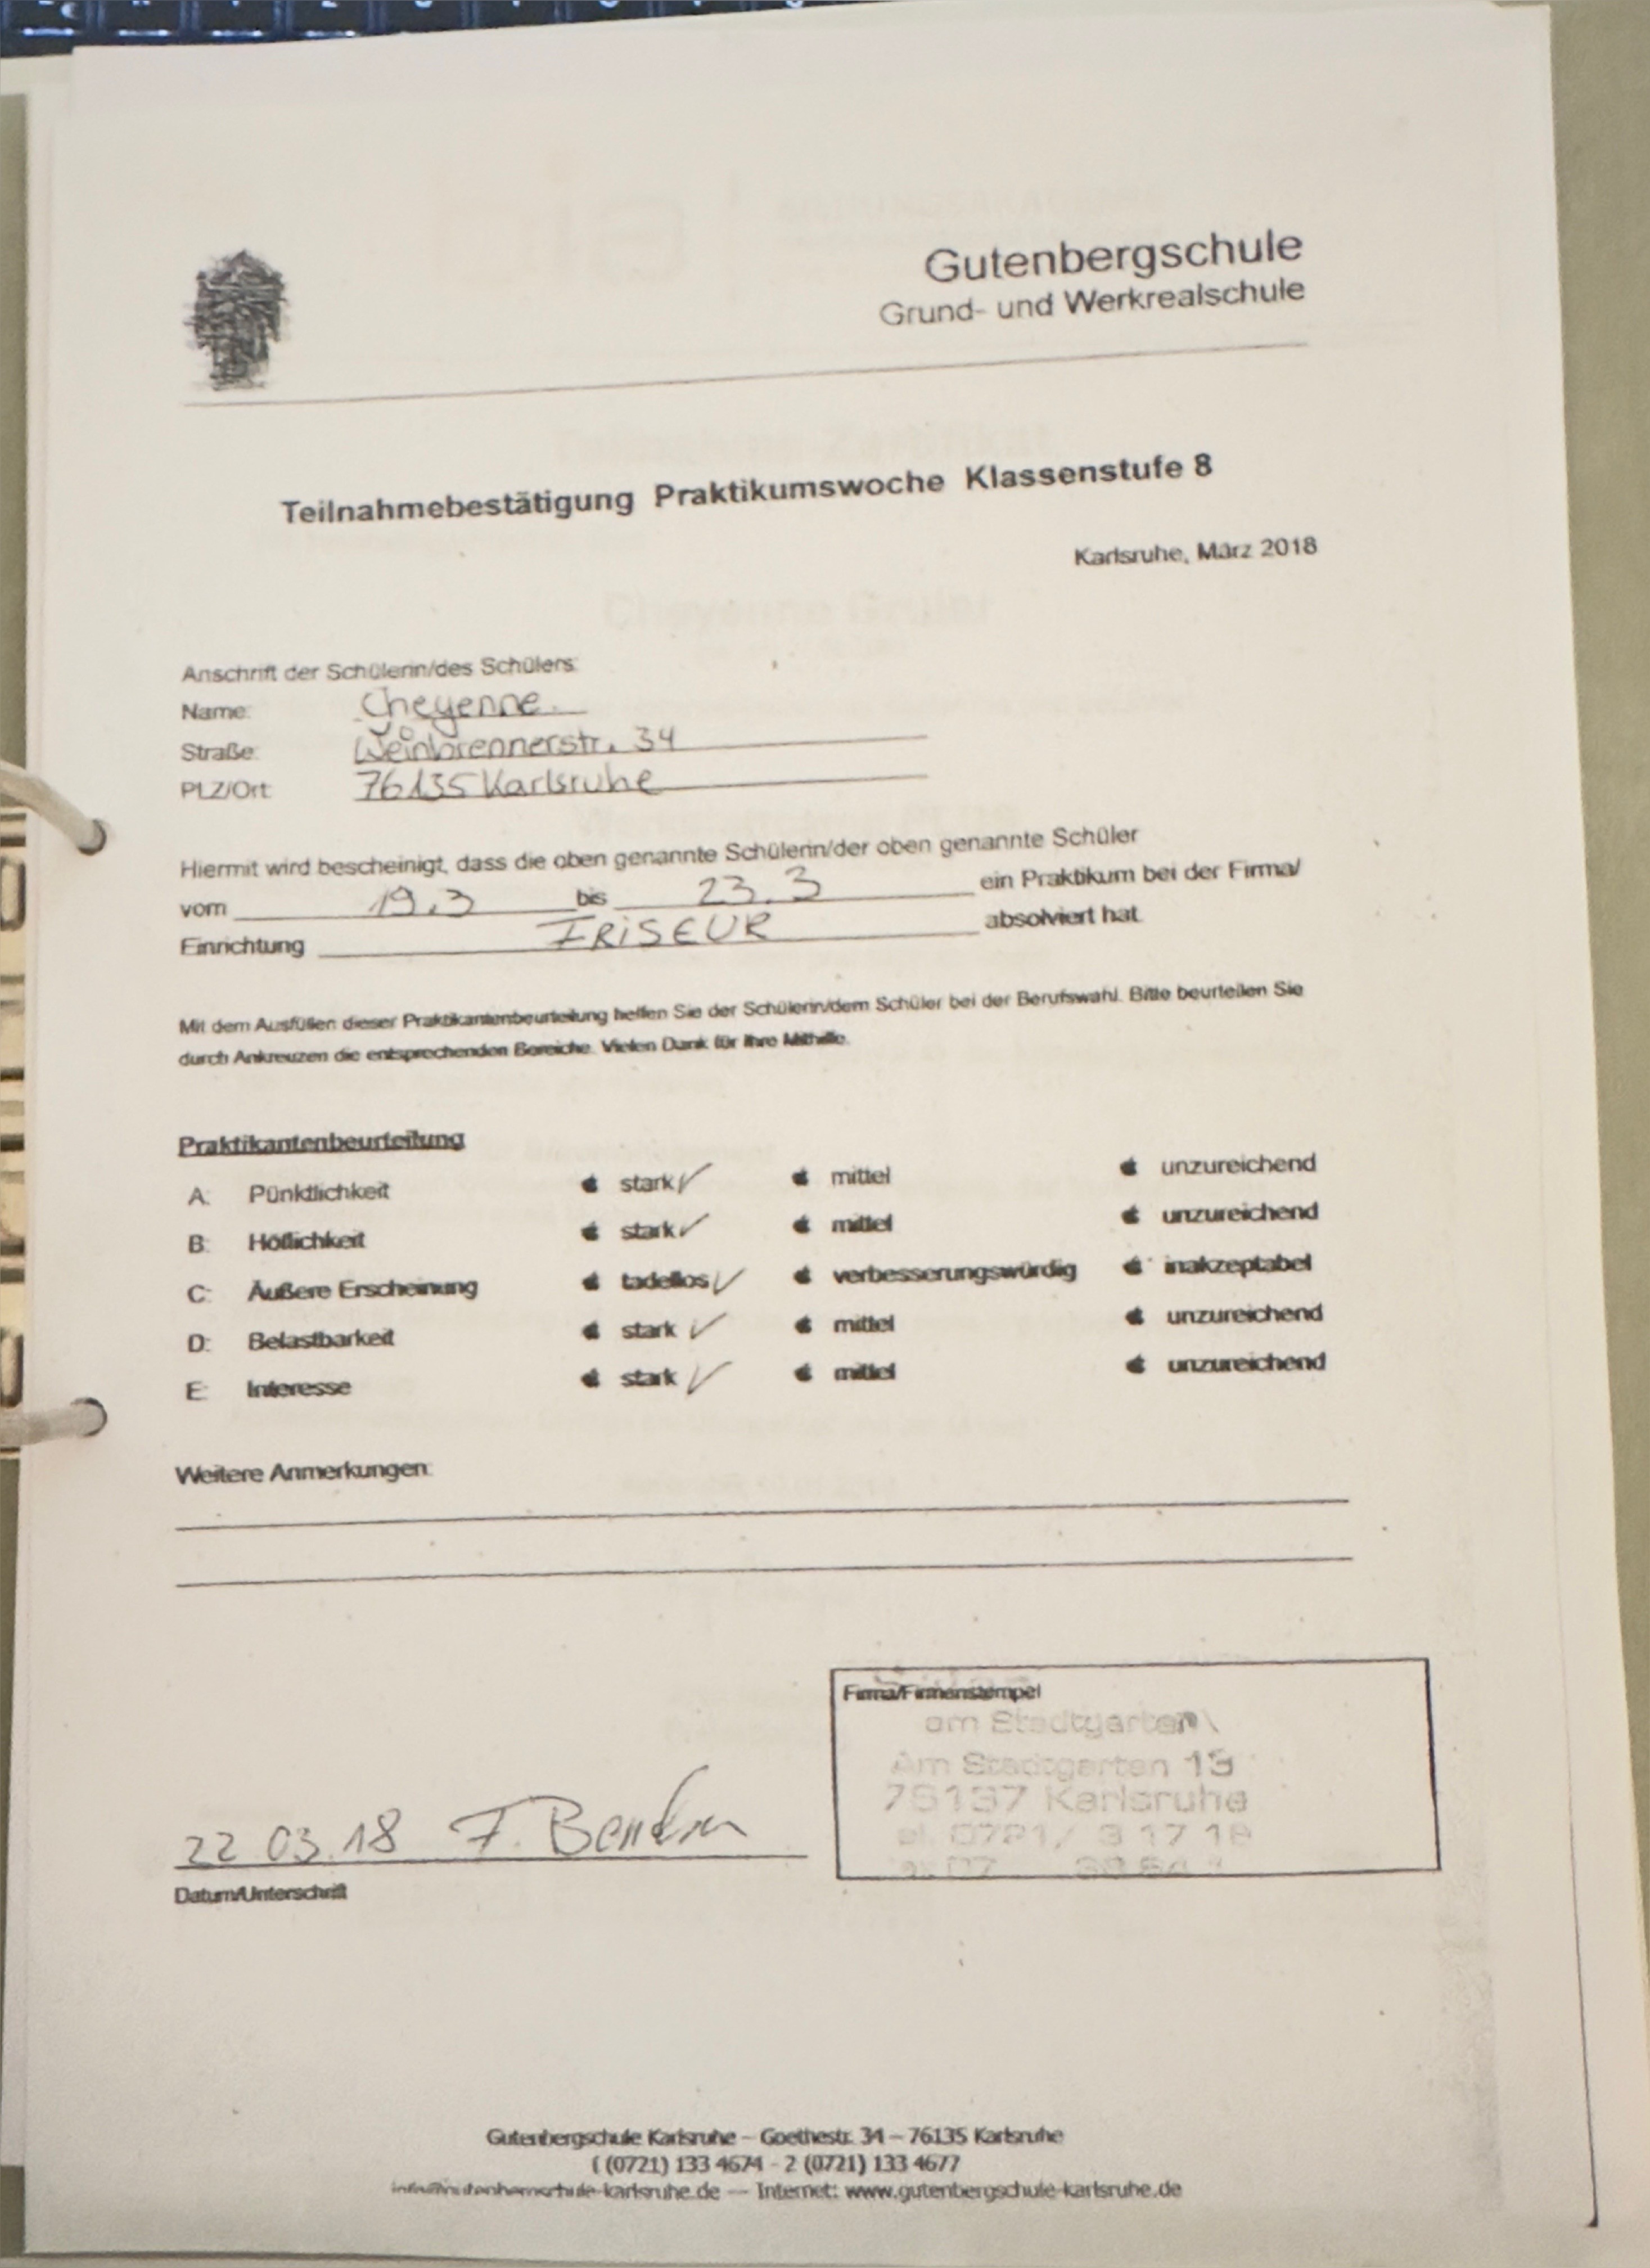 Gutenbergschule
Grund- und Werkrealschule
Teilnahmebestätigung Praktikumswoche Klassenstufe 8
Karlsruhe, März 2018
Anschrift der Schülerin/des Schülers:
Name: Cheyenne
Straße: Weinbrennerstr. 34
PLZ/Ort: 76135 Karlsruhe
Hiermit wird bescheinigt, dass die oben genannte Schülerin/der oben genannte Schüler
vom 19.3 bis 23.3 ein Praktikum bei der Firma/
Einrichtung FRiSEUR absolviert hat.
Mit dem Ausfüllen dieser Praktikantenbeurteilung helfen Sie der Schülerin/dem Schüler bei der Berufswahl. Bitte beurteilen Sie
durch Ankreuzen die entsprechenden Bereiche. Vielen Dank für Ihre Mithilfe.
Praktikantenbeurteilung
A: Pünktlichkeit stark ✓ mittel unzureichend
B: Höflichkeit stark ✓ mittel unzureichend
C: Äußere Erscheinung tadellos ✓ verbesserungswürdig inakzeptabel
D: Belastbarkeit stark ✓ mittel unzureichend
E: Interesse stark ✓ mittel unzureichend
Weitere Anmerkungen:
Firma/Firmenstempel
am Stadtgarten
Am Stadtgarten 13
76137 Karlsruhe
22 03.18 F.
Datum/Unterschrift
Gutenbergschule Karlsruhe – Goethestr. 34 – 76135 Karlsruhe
( (0721) 133 4674 - 2 (0721) 133 4677
info@gutenbergschule-karlsruhe.de — Internet: www.gutenbergschule-karlsruhe.de